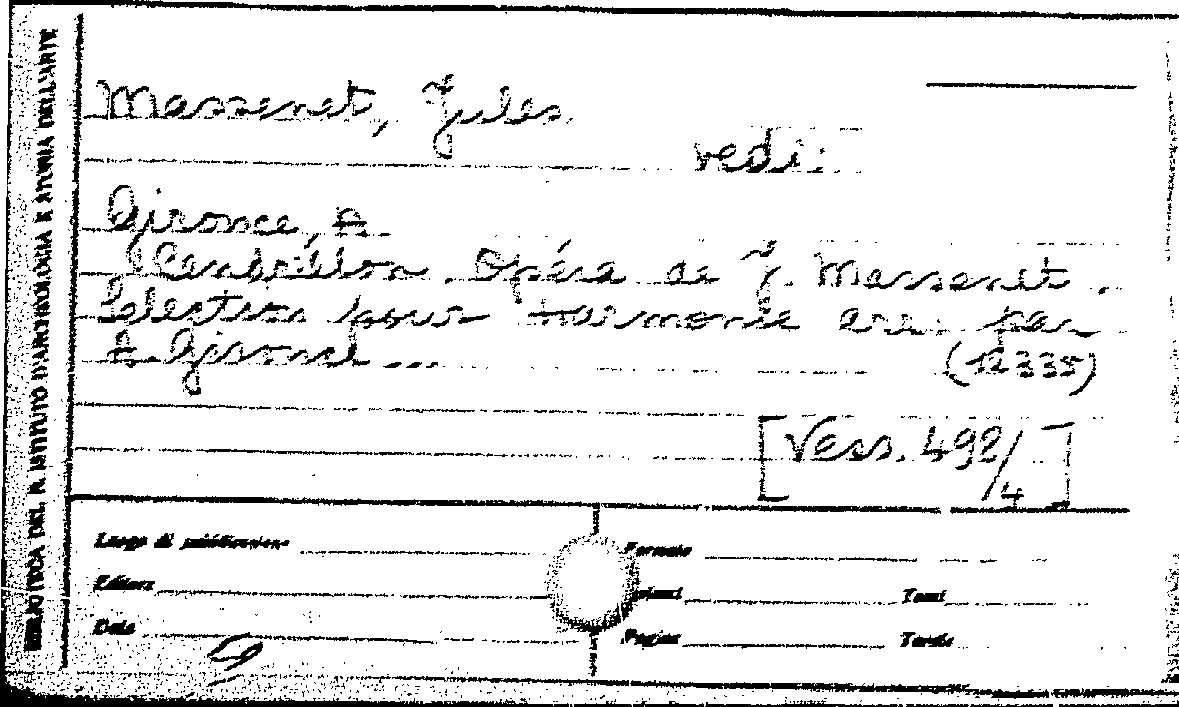 Massenet, Jules
vedi:
Gironce, A.
Cendrillon. Opéra de J. Massenet.
Sélection pour harmonie arr. par
A. Gironce ...
(12335)
[Vess. 492/4]
BIBLIOTECA DEL R. ISTITUTO D'ARCHEOLOGIA E STORIA DELL'ARTE
Luogo di pubblicazione
Formato
Editore
Volumi
Tomi
Data
Pagine
Tavole